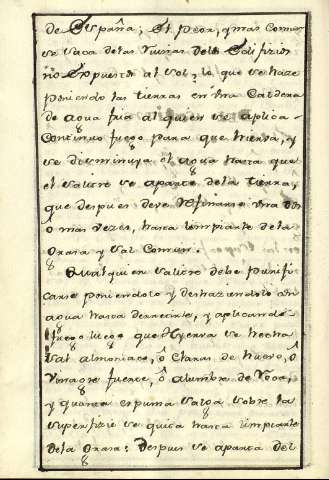 de España; El peor, y mas comun
se saca delas ruinas delos Edifizios
no Expuestos al Sol, lo que se haze
poniendo las tierras en Vna Caldera
de agua fria al quien se aplica
Continuo fuego para que hierva, y
se disminuya el agua hasta que
el salitre se aparte dela tierra, y
que despues deve Refinarse Vna dos
o mas vezes, hasta limpiarle dela
Grasa y Sal Comun.
Qualquien salitre debe purifi
carse poniendolo y deshaziendolo en
agua hasta derretirle, y aplicando
fuego luego que Hierva se hecha
Sal almoniaco, ô Claras de huevo, ô
Vinagre fuerte, ô alumbre de Roca,
y quanta espuma salga sobre la
superfizie se quita hasta limpiarle
dela Grasa: Despues se aparta del